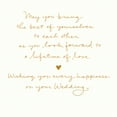 May you bring
the best of yourselves
to each other
as you look forward to
a lifetime of love.
Wishing you every happiness
on your Wedding.